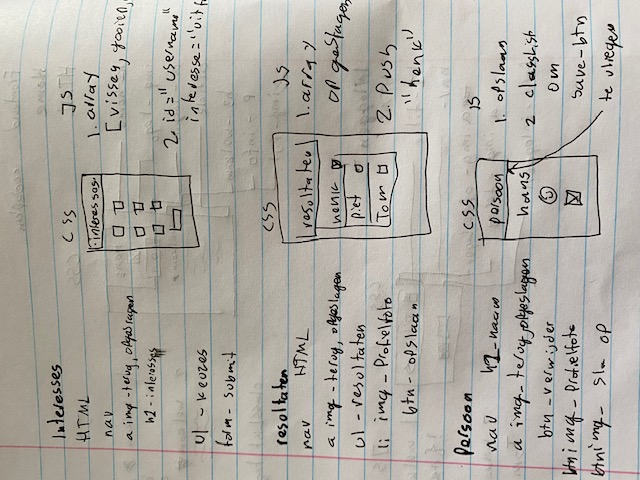 Interesses
HTML
nav
a img - terug, opgeslagen
h1 - interesses
ul - keuzes
form - submit
CSS
interesses
JS
1. array
[vissen, gooien,
2. id="username"
interesse="uit
resultaten
HTML
nav
a img - terug, opgeslagen
ul - resultaten
li img - Profielfoto
btn - opslaan
CSS
resultaten
henk
Piet
Tom
JS
1. array
opgeslagen
2. Push
"henk"
Persoon
nav h1 - naam
a img - terug, opgeslagen
btn - verwijder
btn img - Profielfoto
btn img - Sla op
CSS
persoon
hans
JS
1. opslaan
2 classlist
om
save-btn
te